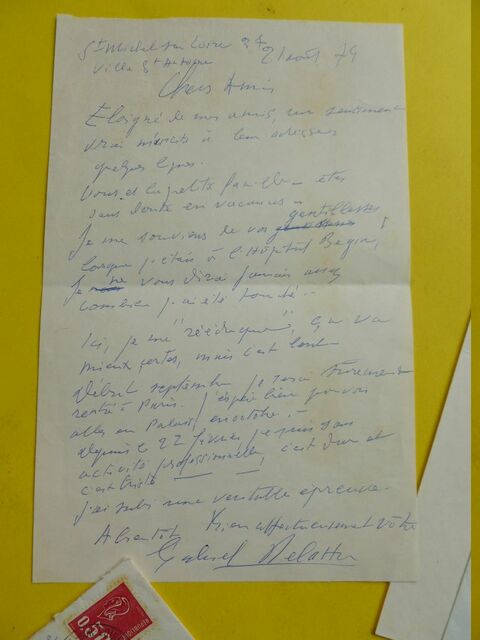 St Michel sur Loire 37
21 août 74
Villa St Antoine
Chers Amis
Eloigné de mes amis, un sentiment
vrai m'incite à leur adresser
quelques lignes.
Vous et la petite famille êtes
sans doute en vacances -
Je me souviens de vos gentillesses
lorsque j'étais à l'Hôpital Begin,
Je ne vous dirai jamais assez
combien j'ai été touché...
Ici, je me "rééduque", ça va
mieux certes, mais c'est lent
Début septembre je serai
rentré à Paris. J'espère bien pouvoir
aller au Palais, en octobre. -
depuis le 22 je suis sans
activité professionnelle, c'est dur et
c'est triste
j'ai subi une véritable épreuve.
A bientôt Bien affectueusement vôtre
Gabriel Delattre
0,50